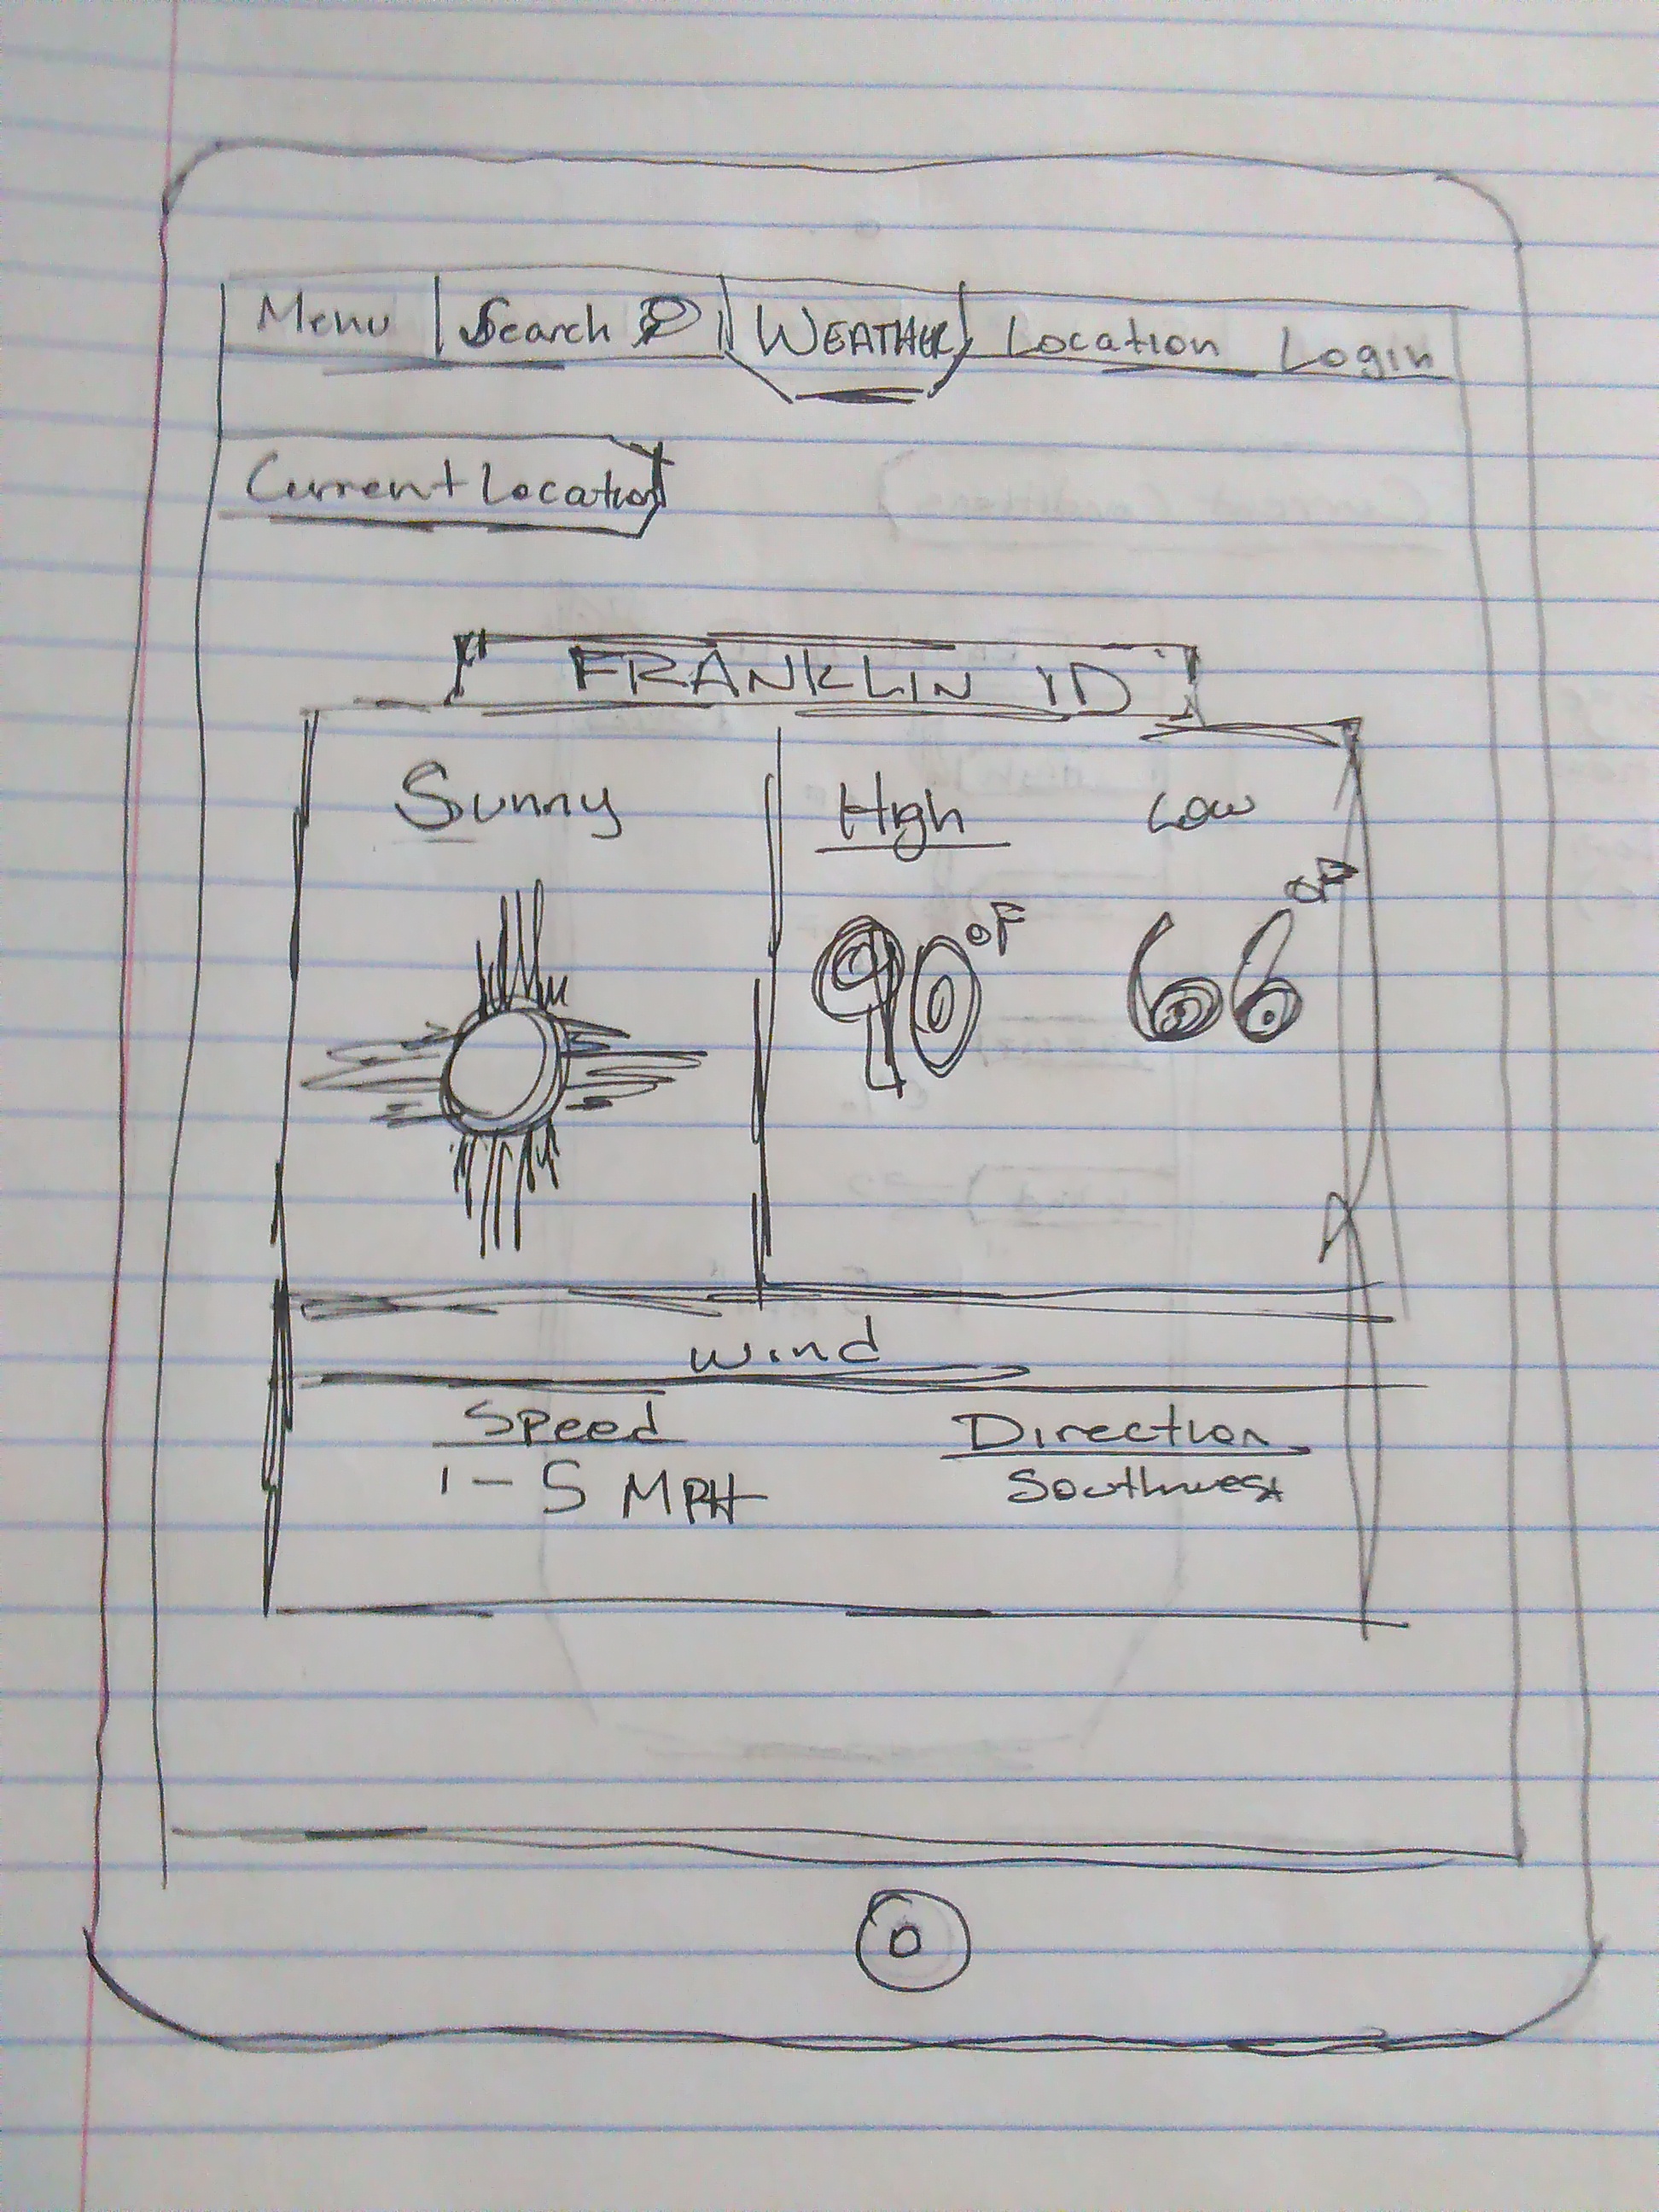 Menu Search WEATHER Location Login
Current Location
FRANKLIN ID
Sunny High Low
90 °F 66 °F
Wind
Speed Direction
1-5 MPH Southwest